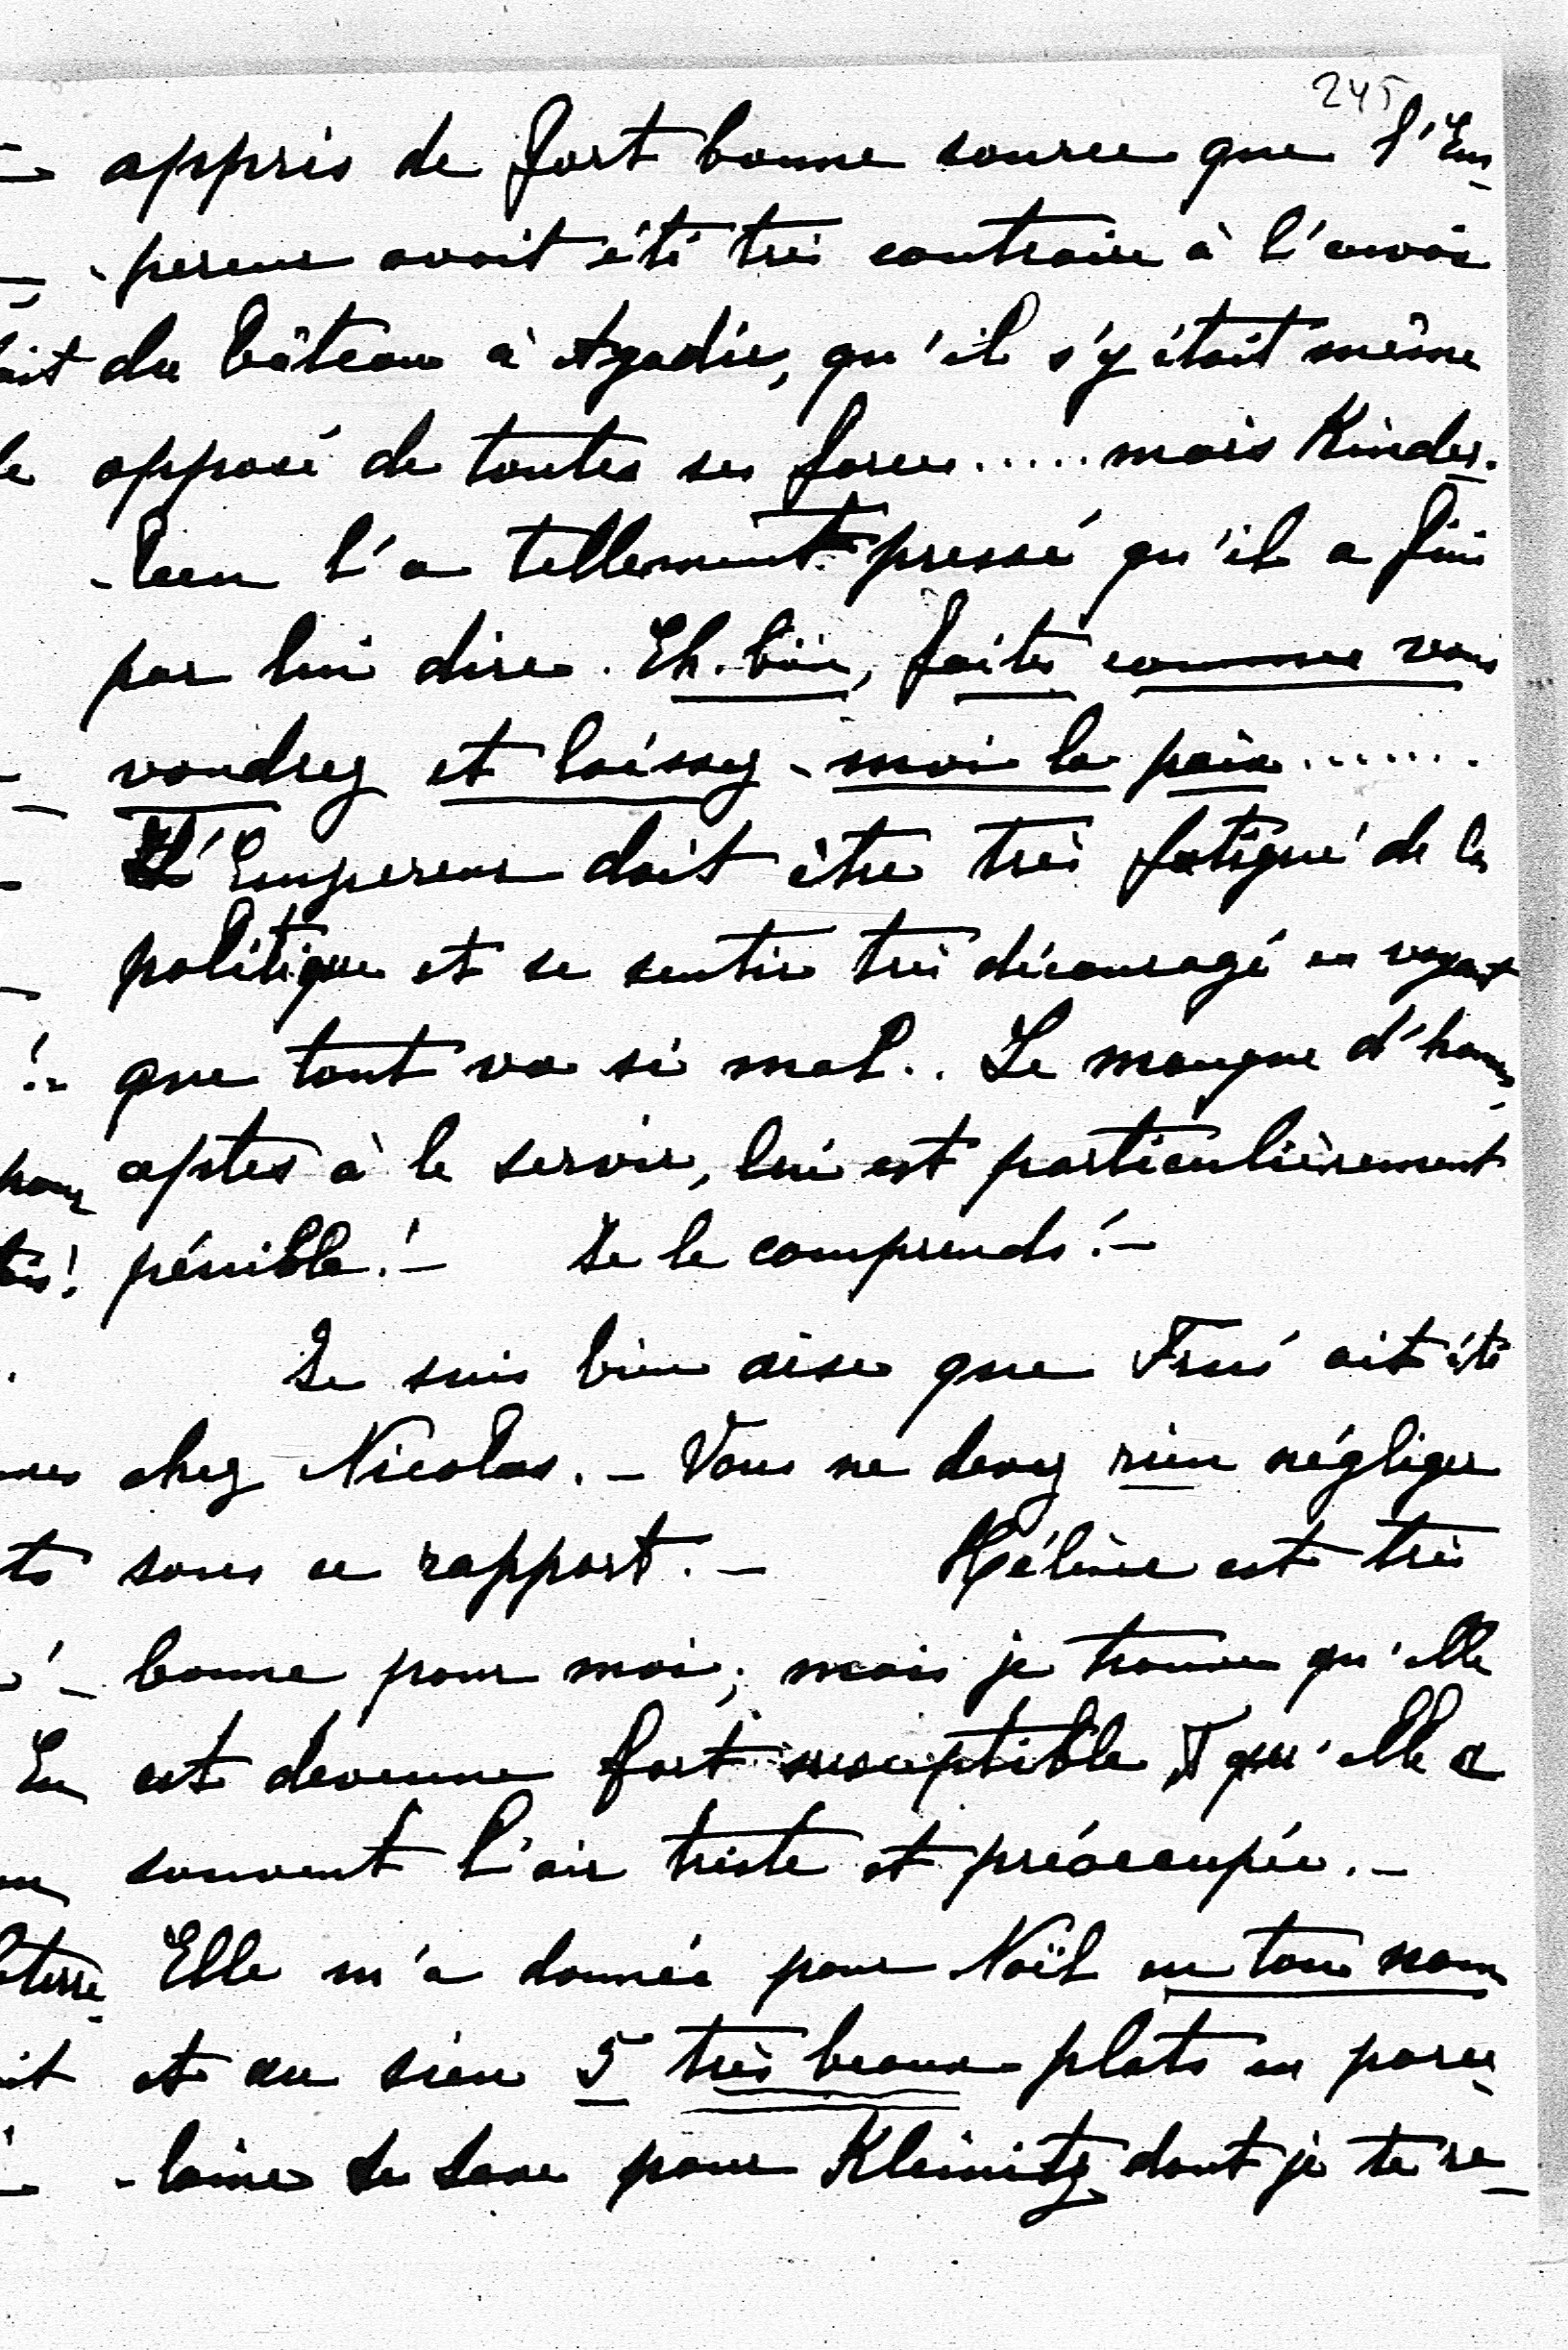 245
appris de fort bonne source que l'Em-
-pereur avait été très contraire à l'envoi
du bâteau à Agadir, qu'il s'y était même
opposé de toutes ses forces..... mais Kinder-
-leen l'a tellement pressé qu'il a fini
par lui dire. Eh. bien, faites comme vous
voudrez et laissez-moi la paix.......
L'Empereur doit être très fatigué de la
politique et se sentir très découragé en voyant
que tout va si mal.. Le manque d'hommes
aptes à le servir, lui est particulièrement
pénible!- Je le comprends!-
Je suis bien aise que Frué ait été
chez Nicolas. - Vous ne devez rien négliger
sous ce rapport. - Hélène est très
bonne pour moi; mais je trouve qu'elle
est devenue fort susceptible & qu'elle a
souvent l'air triste et préoccupée. -
Elle m'a donnée pour Noël en ton nom
et au sien 5 très beaux plats en porce-
-laine de Saxe pour Kleinitz dont je te re-